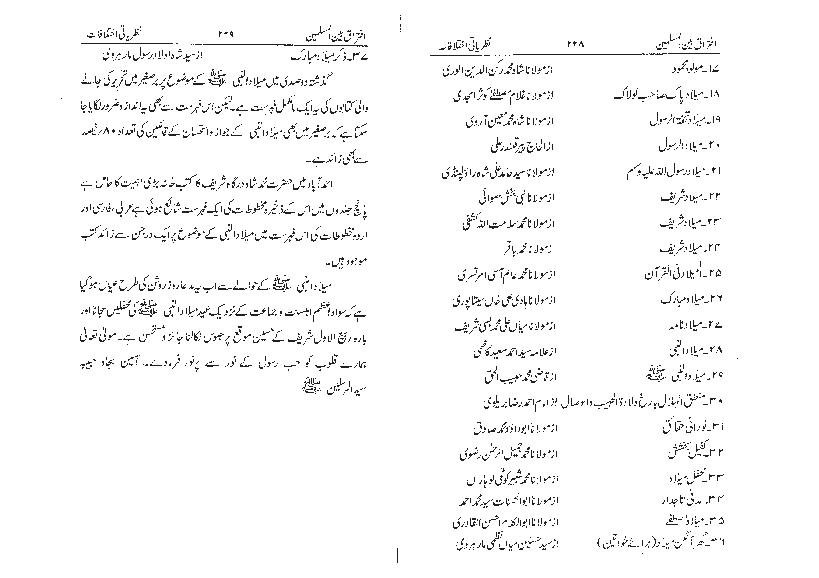 افتراق بین المسلمین ۲۲۸ نظریاتی اختلافات
۱۷۔ مولود محمود از مولانا شاہ محمد رکن الدین الوری
۱۸۔ میلاد پاک صاحب لولاک از مولانا غلام مصطفٰے کوثر امجدی
۱۹۔ میلاد تحفۃ الرسول از مولانا شاہ محمد معین آروی
۲۰۔ میلاد الرسول از الحاج پیر قلندر علی
۲۱۔ میلاد رسول اللہ علیہ وسلم از مولانا سید حامد علی شاہ راولپنڈی
۲۲۔ میلاد شریف از مولانا نبی بخش حلوائی
۲۳۔ میلاد شریف از مولانا محمد سلامت اللہ کشفی
۲۴۔ میلاد شریف از مولانا محمد باقر
۲۵۔ المیلاد فی القرآن از مولانا محمد عالم آسی امرتسری
۲۶۔ میلاد مبارک از مولانا ہادی علی خاں سیتاپوری
۲۷۔ میلاد نامہ از مولانا میاں علی محمد بسی شریف
۲۸۔ میلاد النبی از علامہ سید احمد سعید کاظمی
۲۹۔ میلاد النبی ﷺ از قاضی محمد حبیب الحق
۳۰۔ نطق الہلال بارخ ولادۃ الحبیب والوصال از امام احمد رضا بریلوی
۳۱۔ نورانی حقائق از مولانا ابو داؤد محمد صادق
۳۲۔ کفیل بخشش از مولانا محمد جمیل الرحمٰن رضوی
۳۳۔ محفل میلاد از مولانا محمد شبیر کوٹلی لوہاراں
۳۴۔ مدنی تاجدار از مولانا ابو الحسنات سید محمد احمد
۳۵۔ میلاد مصطفٰے از مولانا ابو الکلام احسن القادری
۳۶۔ گھر آنگن میلاد (برائے خواتین) از سید حسنین میاں نظمی مارہروی
افتراق بین المسلمین ۲۲۹ نظریاتی اختلافات
۳۷۔ ذکر میلاد مبارک از سید شاہ اولاد رسول مارہروی
گذشتہ دو صدی میں میلاد النبی ﷺ کے موضوع پر برصغیر میں تحریر کی جانے
والی کتابوں کی یہ ایک نامکمل فہرست ہے۔ لیکن اس فہرست سے بھی یہ اندازہ ضرور لگایا جا
سکتا ہے کہ برصغیر میں بھی میلاد النبی کے جواز و استحسان کے قائلین کی تعداد ۸۰ فیصد
سے بھی زائد ہے۔
احمد آباد میں حضرت محمد شاہ درگاہ شریف کا کتب خانہ بڑی اہمیت کا حامل ہے
پانچ جلدوں میں اس کے ذخیرہ مخطوطات کی ایک فہرست شائع ہوئی ہے عربی، فارسی اور
اردو مخطوطات کی اس فہرست میں میلاد النبی کے موضوع پر ایک درجن سے زائد کتب
موجود ہیں۔
میلاد النبی ﷺ کے حوالے سے اب یہ مدعا روز روشن کی طرح عیاں ہو گیا
ہے کہ سواد اعظم اہلسنت و جماعت کے نزدیک عید میلاد النبی ﷺ کی محفلیں سجانا اور
بارہ ربیع الاول شریف کے حسین موقع پر جلوس نکالنا جائز و مستحسن ہے۔ مولیٰ تعالیٰ
ہمارے قلوب کو حب رسول کے نور سے پر نور فرمادے۔ آمین بجاہ حبیبہ
سید المرسلین ﷺ